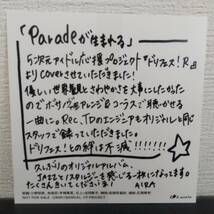 「Paradeが生まれる」
5次元アイドル応援プロジェクト『ドリフェス!R』
よりCoverさせていただきました!
優しい世界観とさわやかさを大事にしたかった
のでボサノヴァ風アレンジ&コーラスで聴かせる
一曲に。Rec、TDのエンジニアもオリジナルと同じ
スタッフで録ってもらいました。
ドリフェス!との絆は不滅!!!!
久しぶりのオリジナルアルバム。
JAZZとノスタルジーを感じる一枚になってます。
たくさんきいてくださいネ! AIRA
NOT FOR SALE